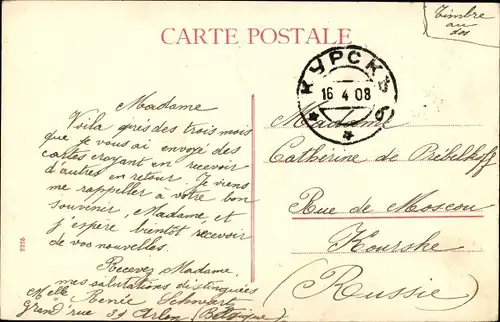 Timbre
au
dos
CARTE POSTALE
КУРСКЪ
16 4 08
б
Madame
Voila près des trois mois
que je vous ai envoyé des
cartes croyant en recevoir
d'autres en retour. Je viens
me rappeller à votre bon
souvenir, Madame et
j'espère bientôt recevoir
de vos nouvelles.
Recevez Madame,
mes salutations distinguées
Melle Renée Schwartz
grand rue 31 Arlon (Belgique)
Madame
Cathérine de Prébelkoff
Rue de Moscou
Kourske
(Russie)